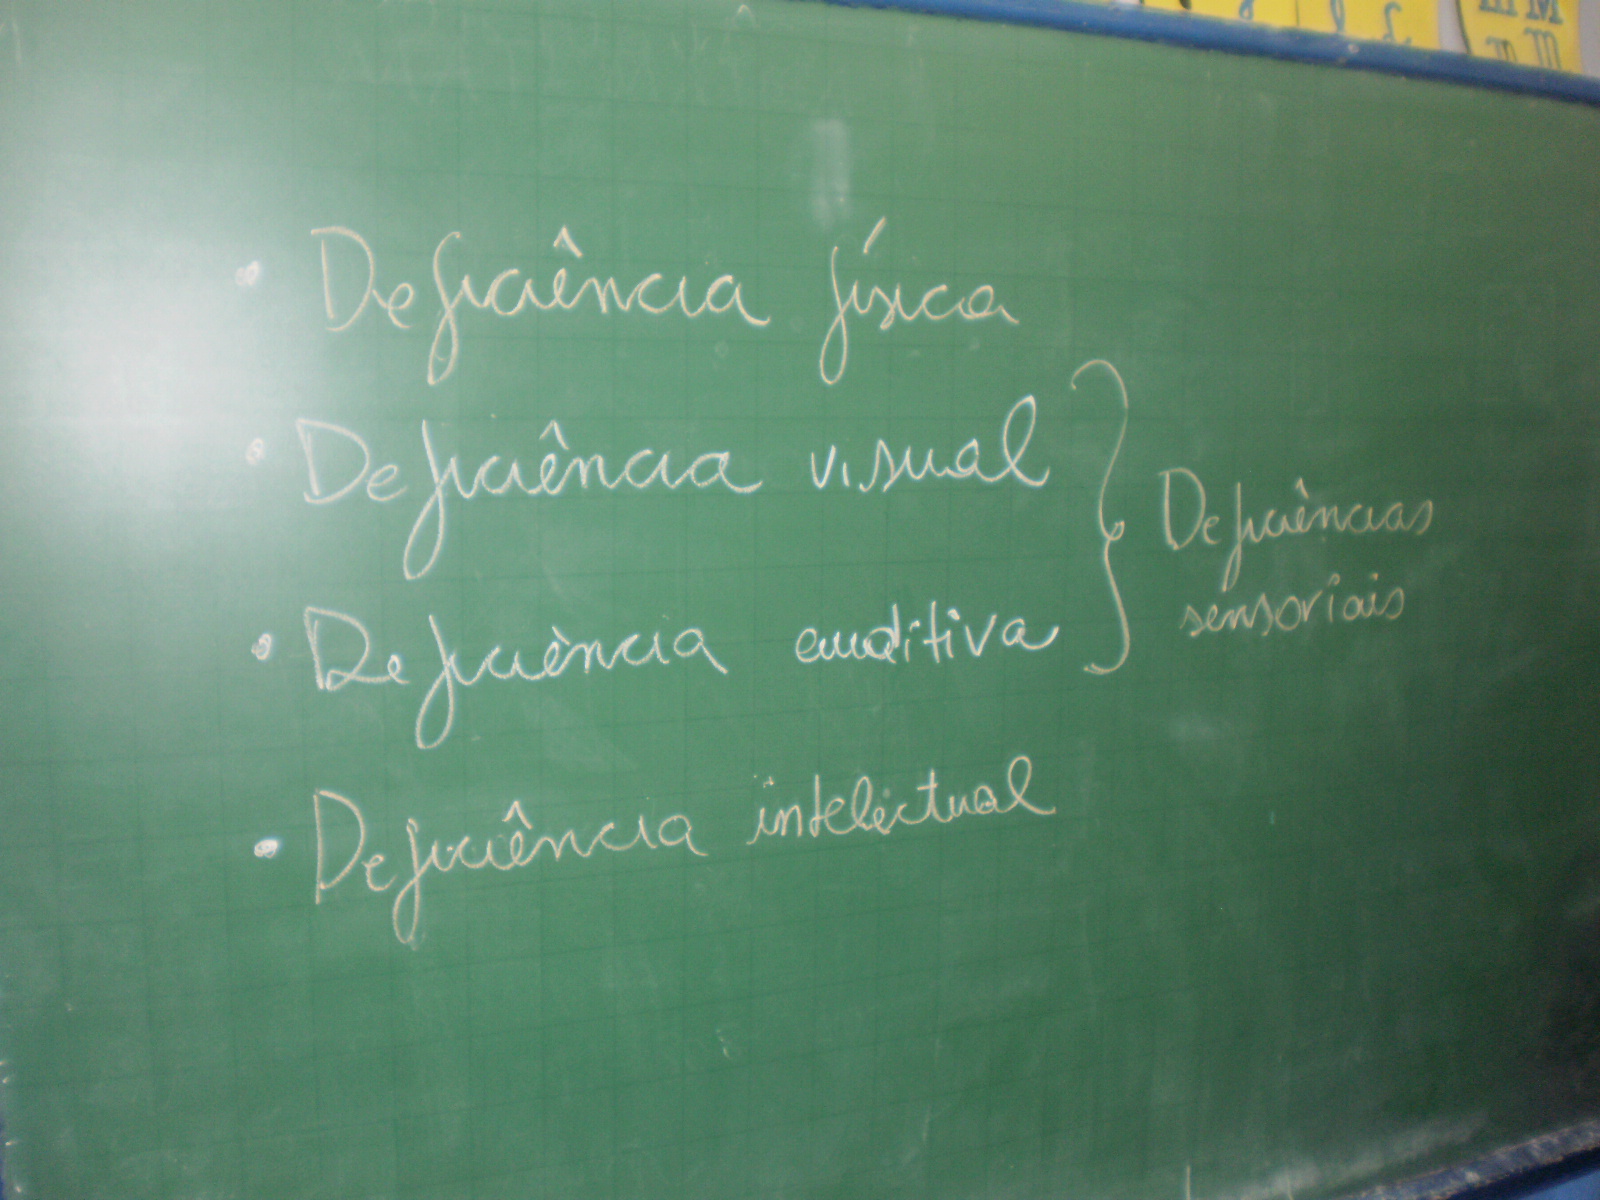 • Deficiência física
• Deficiência visual
• Deficiência auditiva
• Deficiência intelectual
} Deficiências
sensoriais
m M
m m